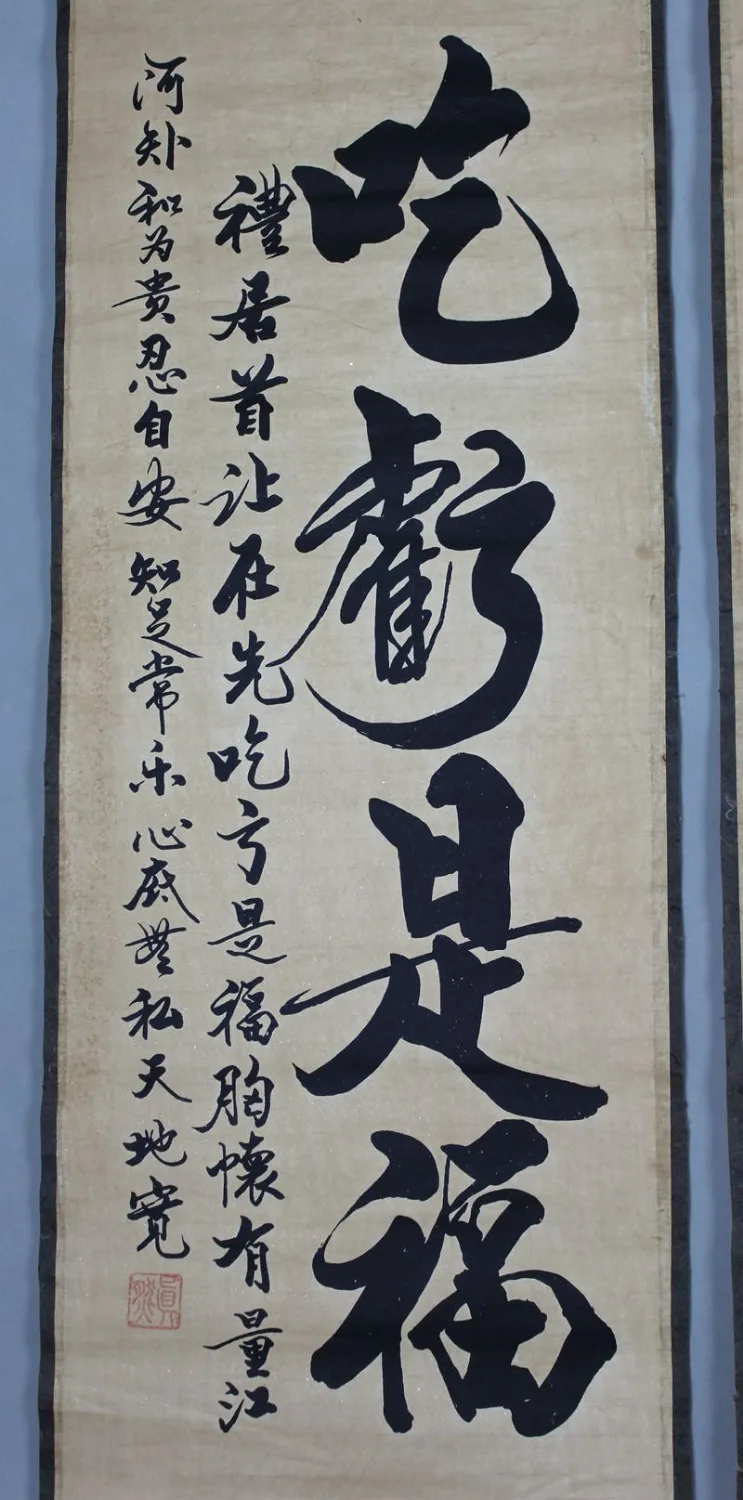 吃虧是福
禮居首让在先吃亏是福胸懷有量江
河和为贵忍自安知足常乐心底無私天地宽